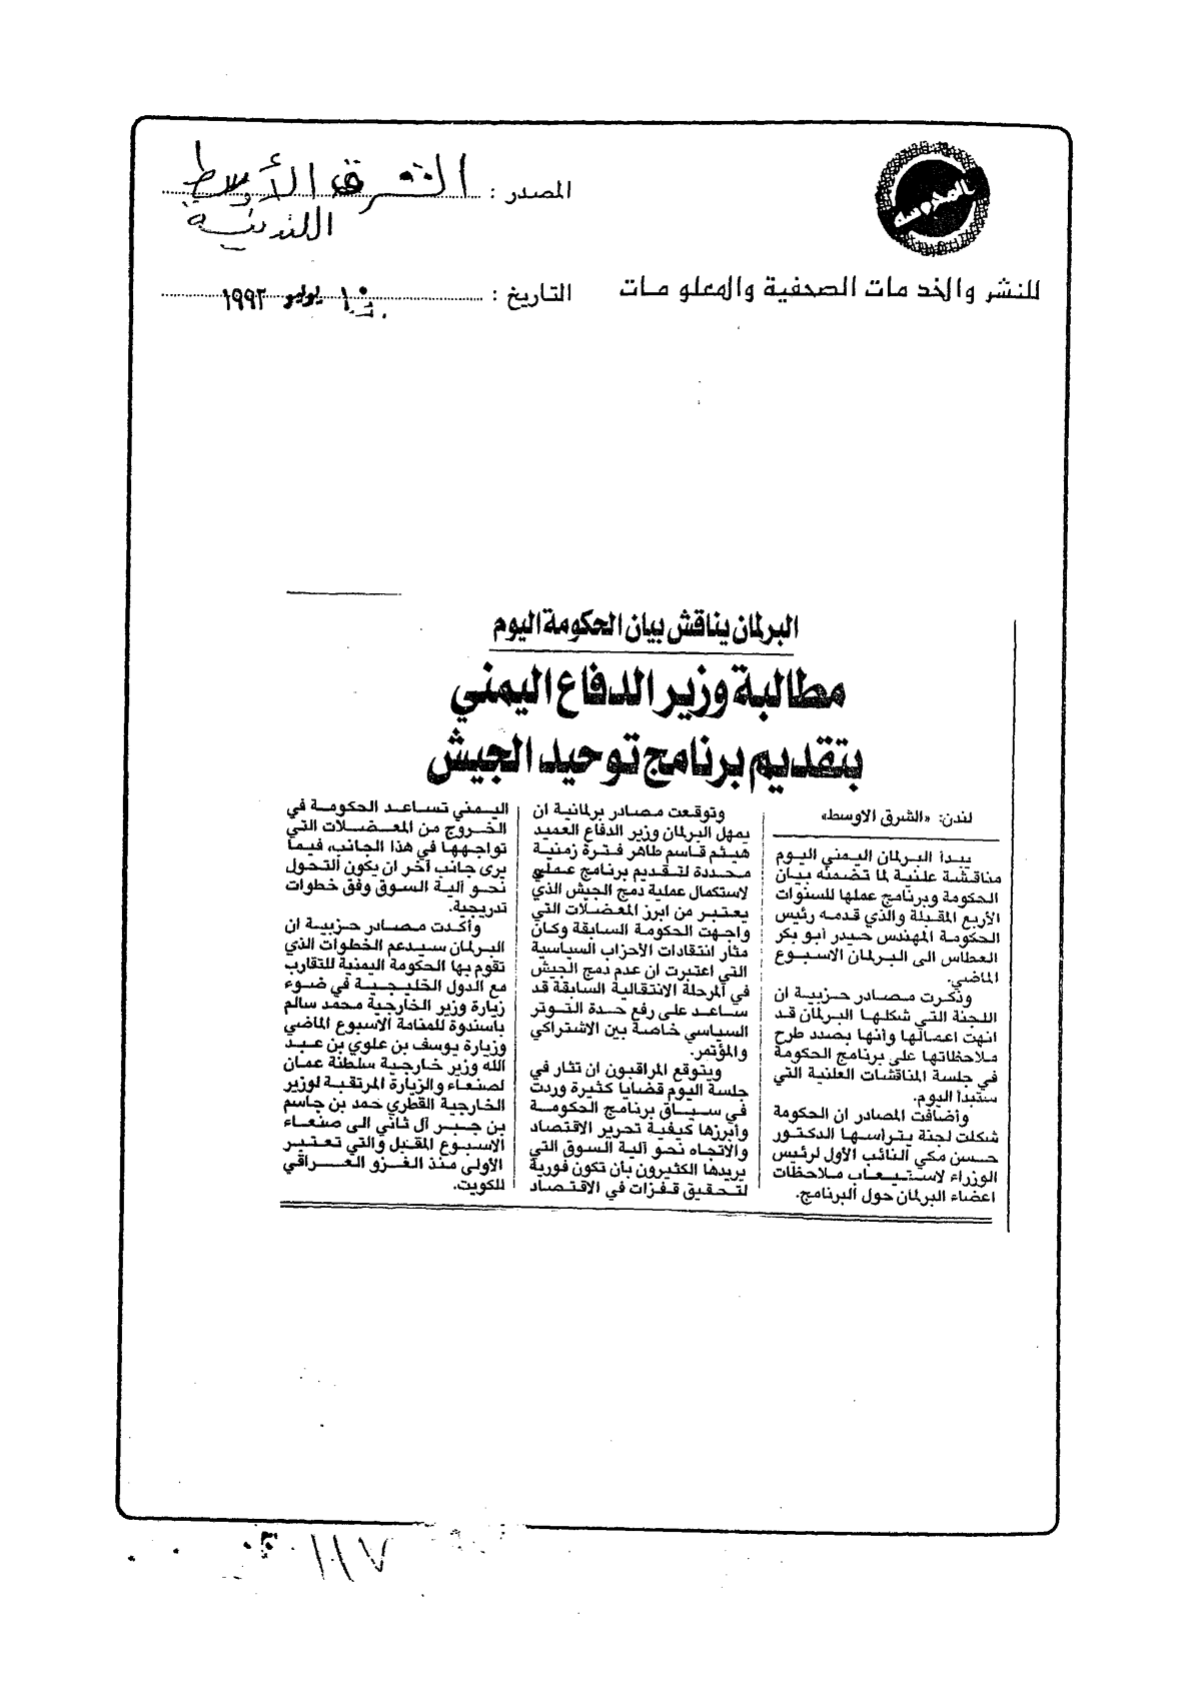 المحروسة
للنشر والخدمات الصحفية والمعلومات
المصدر : الشرق الأوسط
اللندنية
التاريخ : ١٠ يوليو ١٩٩٣
البرلمان يناقش بيان الحكومة اليوم
مطالبة وزير الدفاع اليمني
بتقديم برنامج توحيد الجيش
لندن: «الشرق الاوسط»
يبدأ البرلمان اليمني اليوم
مناقشة علنية لما تضمنه بيان
الحكومة وبرنامج عملها للسنوات
الأربع المقبلة والذي قدمه رئيس
الحكومة المهندس حيدر أبو بكر
العطاس الى البرلمان الاسبوع
الماضي.
وذكرت مصادر حزبية ان
اللجنة التي شكلها البرلمان قد
انهت اعمالها وأنها بصدد طرح
ملاحظاتها على برنامج الحكومة
في جلسة المناقشات العلنية التي
ستبدأ اليوم.
وأضافت المصادر ان الحكومة
شكلت لجنة يترأسها الدكتور
حسن مكي النائب الأول لرئيس
الوزراء لاستيعاب ملاحظات
اعضاء البرلمان حول البرنامج.
وتوقعت مصادر برلمانية ان
يمهل البرلمان وزير الدفاع العميد
هيثم قاسم طاهر فترة زمنية
محددة لتقديم برنامج عملي
لاستكمال عملية دمج الجيش الذي
يعتبر من ابرز المعضلات التي
واجهت الحكومة السابقة وكان
مثار انتقادات الأحزاب السياسية
التي اعتبرت ان عدم دمج الجيش
في المرحلة الانتقالية السابقة قد
ساعد على رفع حدة التوتر
السياسي خاصة بين الاشتراكي
والمؤتمر.
ويتوقع المراقبون ان تثار في
جلسة اليوم قضايا كثيرة وردت
في سياق برنامج الحكومة
وأبرزها كيفية تحرير الاقتصاد
والاتجاه نحو آلية السوق التي
يريدها الكثيرون بأن تكون فورية
لتحقيق قفزات في الاقتصاد
اليمني تساعد الحكومة في
الخروج من المعضلات التي
تواجهها في هذا الجانب، فيما
يرى جانب آخر ان يكون التحول
نحو آلية السوق وفق خطوات
تدريجية.
وأكدت مصادر حزبية ان
البرلمان سيدعم الخطوات الذي
تقوم بها الحكومة اليمنية للتقارب
مع الدول الخليجية في ضوء
زيارة وزير الخارجية محمد سالم
باسندوة للمنامة الاسبوع الماضي
وزيارة يوسف بن علوي بن عبد
الله وزير خارجية سلطنة عمان
لصنعاء والزيارة المرتقبة لوزير
الخارجية القطري حمد بن جاسم
بن جبر آل ثاني الى صنعاء
الاسبوع المقبل والتي تعتبر
الأولى منذ الغزو العراقي
للكويت.